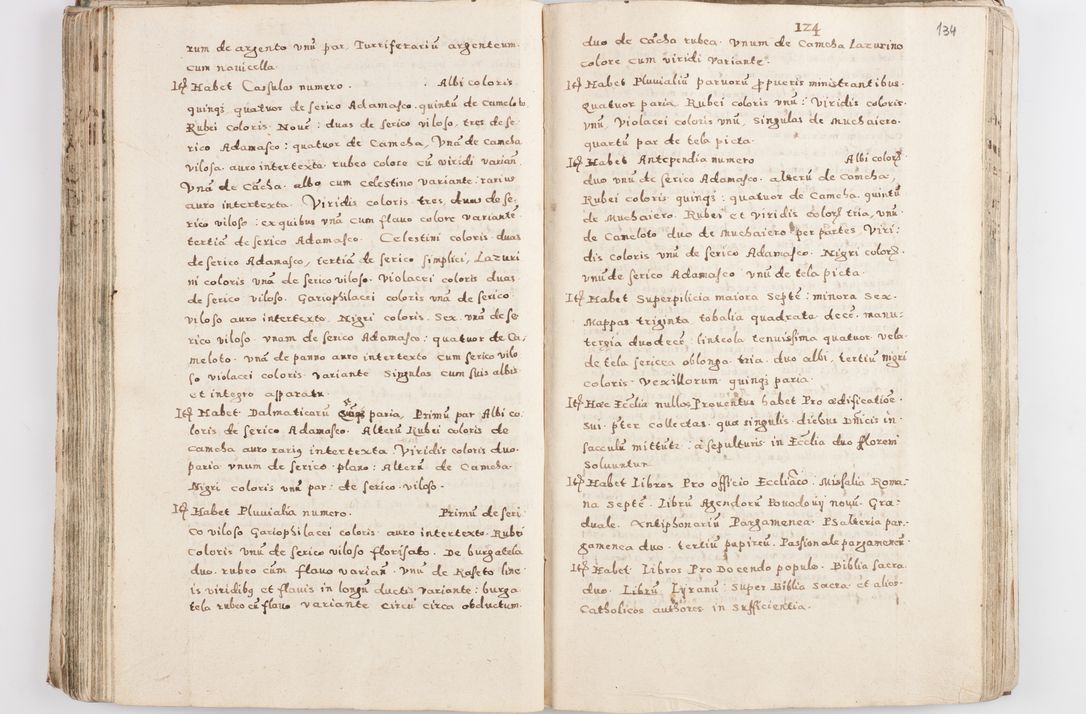 rum de argento unũ par, Turriferariũ argenteum.
cum nauicella.
Itẽ Habet Casulas numero . . Albi coloris
quinqȝ quatuor de serico Adamasco. quintũ de Cameloto
Rubei coloris. Nouẽ: duas de serico viloso. tres de se-
rico Adamasco: quatuor de Camcha, Vnã de camcha
vilosa. auro intertexta. rubeo colore cũ viridi varian̄.
Vnã de Cãcha. albo cum celestino variante: rarius
auro intertexta. Viridis coloris tres, duas de se-
rico viloso: ex quibus vnã cum flauo colore variante
tertiã de serico Adamasco. Celestini coloris duas
de serico Adamasco, tertiã de serico simplici, Lazuri
ni coloris vnã de serico viloso. Violacei coloris duas.
de serico viloso. Gariophilacei coloris vnã de serico
viloso auro intertexto. Nigri coloris. Sex. vnã de se-
rico viloso. vnam de serico Adamasco: quatuor de Ca,
meloto. vnã de panno auro intertexto cum serico vilo
so violacei coloris variante Singulas cum suis albis
et integro apparatu.
Itẽ Habet Dalmaticarũ quinqȝ paria, Primũ par Albi co
loris de serico Adamasco. Alterũ Rubei coloris de
camcha auro rarius intertexta. Viridis coloris duo.
paria vnum de serico plano: Alterũ de Camcha
Nigri coloris vnũ par: de serico viloso.
Itẽ Habet Pluuialia numero. Primũ de seri
co viloso Gariophilacei coloris auro intertexto. Rubei
Coloris vnũ de serico viloso florisato. De burgatela
duo. rubeo cũm flauo varian̄. vnũ de Kaseto line
is viridibȝ et flauis in longũ ductis variante: burga
tela rubeo cũ flauo variante circũ circa obductum.
124
134
duo de Cãcha rubea. Vnum de Camcha Lazurino
colore cum viridi variante.
Itẽ Habet Pluuialiũ paruorũ p̱ pueris ministrantibus.
quatuor paria. Rubei coloris vnũ: Viridis coloris.
vnũ, Violacei coloris vnũ, Singulas de Muchaiero.
quartũ par de tela picta.
Itẽ Habet Antependia numero Albi colorȝ
duo vnũ de serico Adamasco. alterũ de Camcha,
Rubei coloris quinqȝ: quatuor de Camcha. quintũ
de Muchaiero. Rubei et viridis colorȝ tria, vnũ
de Cameloto duo de muchaiero per partes. Viri:
dis coloris vnũ de serico Adamasco. Nigri colorȝ.
vnũ de serico Adamasco vnũ de tela picta.
Itẽ Habet Superpilicia maiora Septẽ: minora Sex.
Mappas triginta tobalia quadrata decẽ. manu:
tergia duodecẽ. linteola tenuissima quatuor. vela.
de tela sericea oblonga. tria. duo albi. tertiũ nigri
coloris. Vexillorum quinqȝ paria.
Itẽ Hæc Ecclĩa nullos Prouentus habet Pro ædificatiõe.
sui. p̃ter collectas, qua singulis diebus Dñicis in
sacculũ mittutr: à sepulturis in Ecclĩa duo florem̃
soluuntur.
Itẽ Habet Libros Pro officio Eccliãco. Missalia Roma-
na Septẽ. Librũ Agendorũ Powodowij nouũ. Gra-
duale. Antiphonariũ Pargamenea. Psalteria par.
gamenea duo. tertiũ papireũ. Passionale pargameneũ.
Itẽ Habet. Libros Pro Docendo populo. Biblia sacra.
duo. Librũ Lyranũ Super Biblia Sacra. et alios.
Catholicos authores in sufficientia.